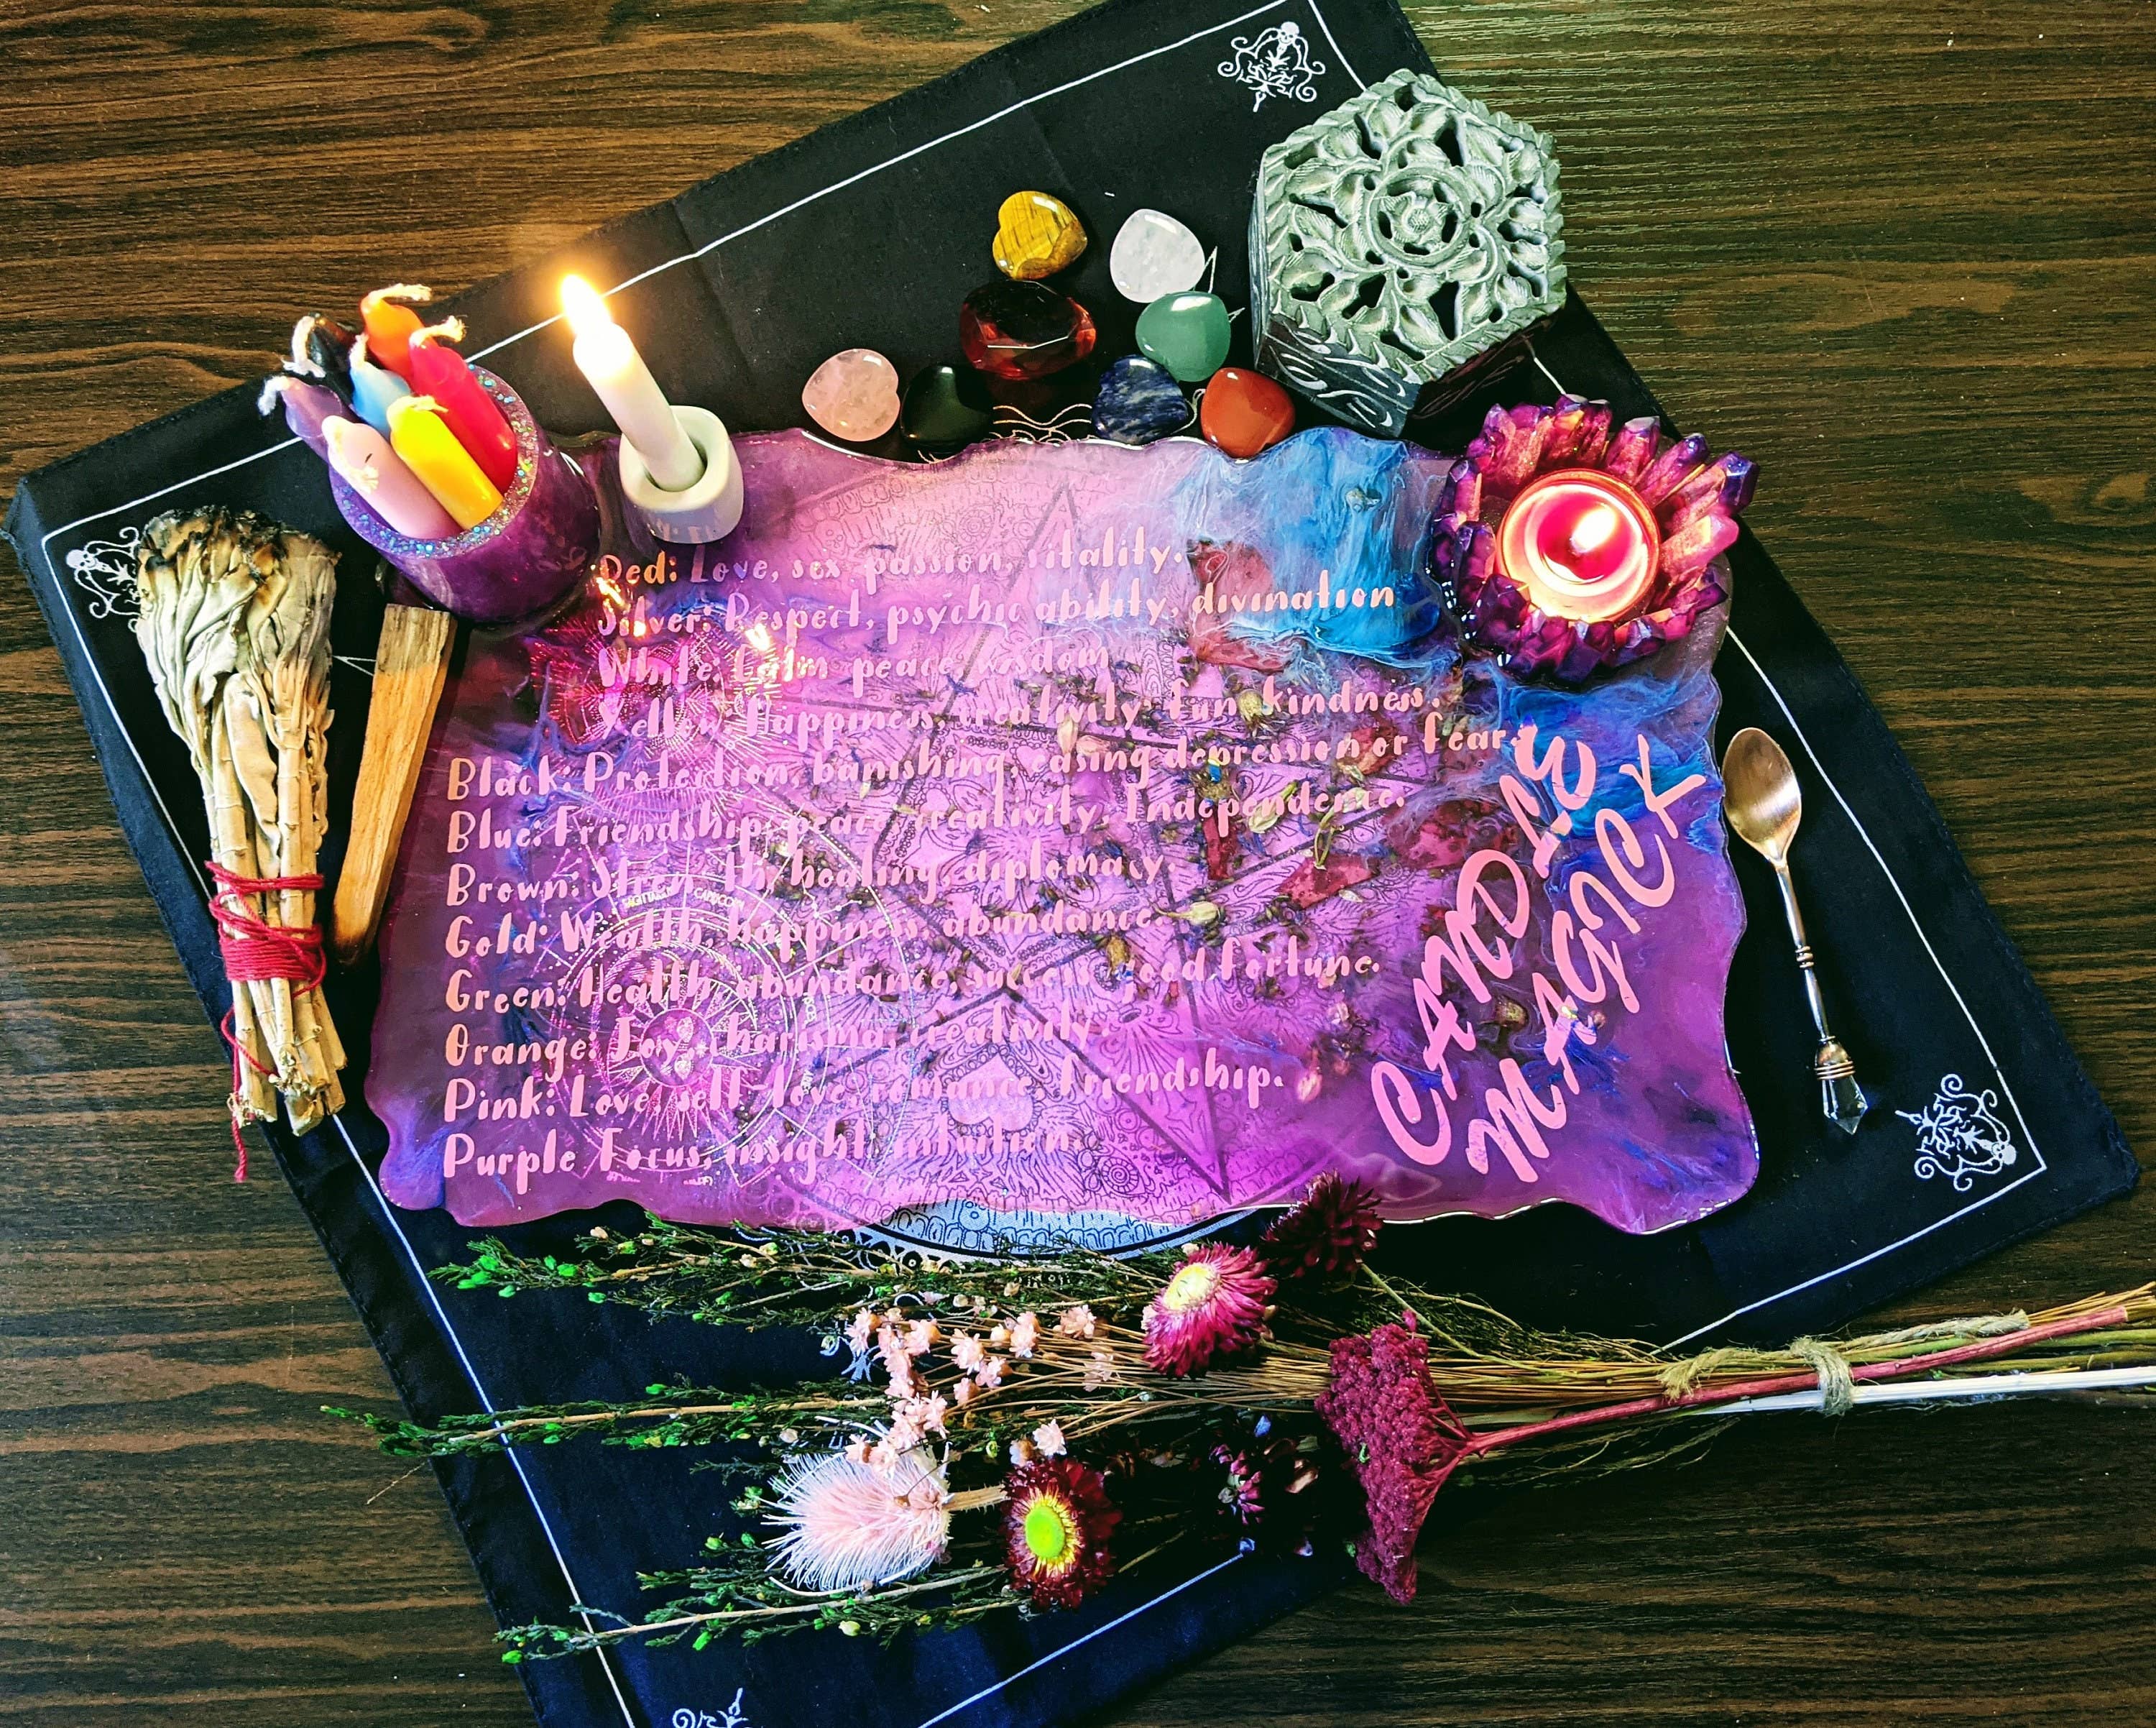 Red: Love, sex, passion, vitality.
Silver: Respect, psychic ability, divination
White: Calm peace, wisdom
Yellow: Happiness, creativity, fun, kindness.
Black: Protection, banishing, easing depression or fear.
Blue: Friendship, peace, creativity, Independence.
Brown: Strength, healing, diplomacy.
Gold: Wealth, happiness, abundance.
Green: Health, abundance, success, good fortune.
Orange: Joy, charisma, creativity.
Pink: Love, self-love, romance, friendship.
Purple Focus, insight, intuition.
CANDLE
MAGICK
SAGITTARIUS CAPRICORN